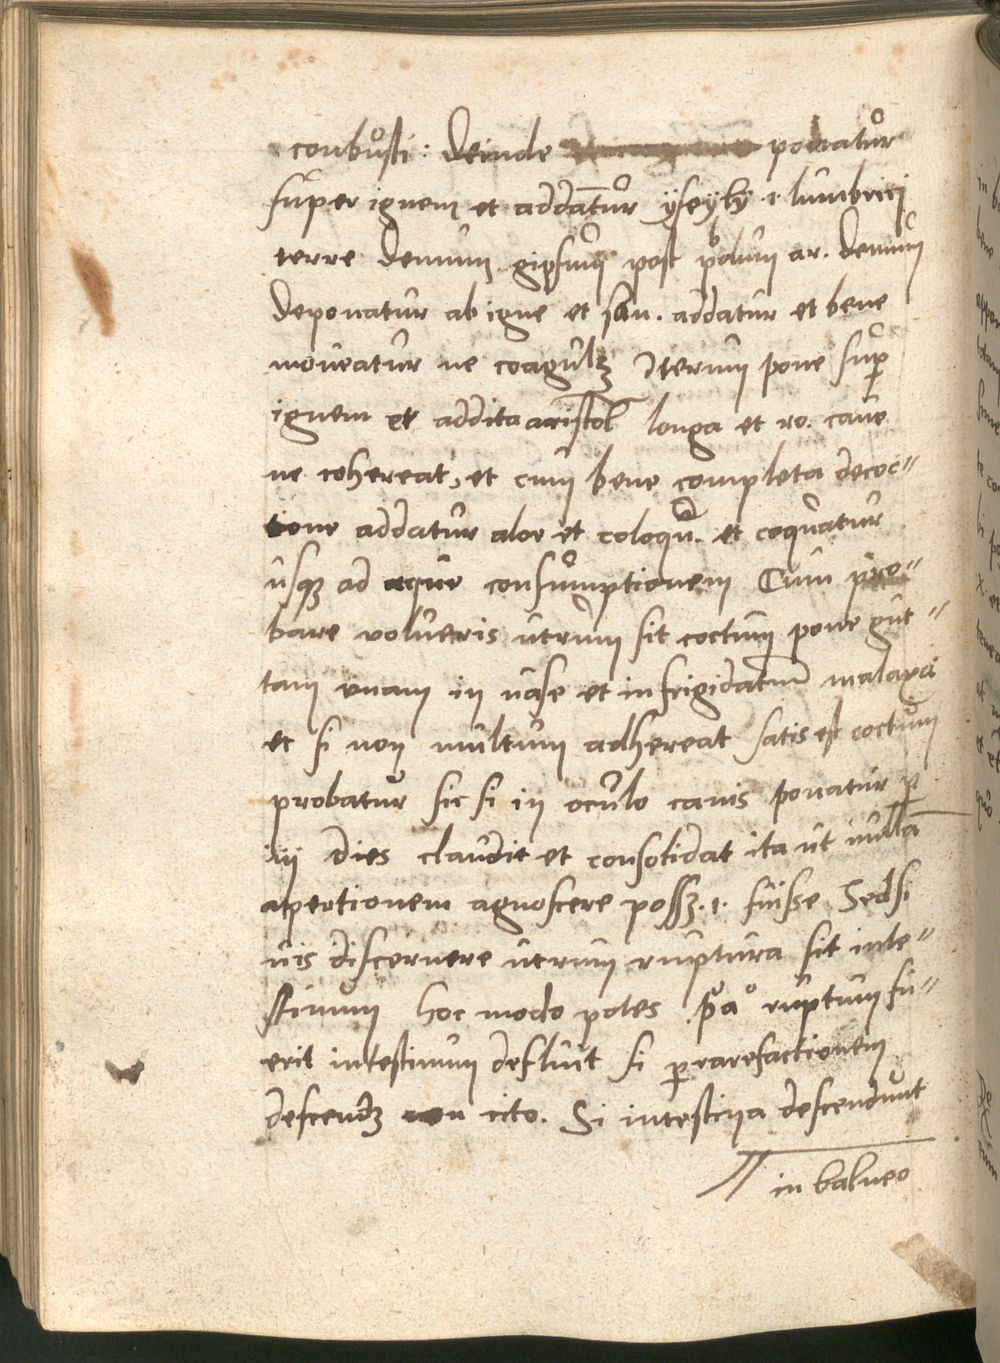 conbusti: Deinde ponatur
super ignem et addatur yseyly .i. lumbrici
terre Demum gipsum post polum ar. Demum
Deponatur ab igne et san. addatur et bene
moveatur ne coagulꝫ Iterum pone suꝑ
ignem et addita aristol longa et ro. cave
ne cohereat, et cum bene completa decoc〃
tione addatur aloe et coloqu. et coquatur
usqꝫ ad aque consumptionem Cum pro〃
bare volueris utrum sit coctum pone gut〃
tam unam in vase et infrigidatum malaxa
et si non multum adhereat satis est coctum
probatur sic si in oculo canis ponatur ꝑ
iij dies claudit et consolidat ita ut nulla
apertionem agnoscere possꝫ .i. fuisse Sed si
vis discernere utrum ruptura sit inte〃
stinum hoc modo potes ruptum fu〃
erit intestinum defluit si ꝑ rarefactionem
descendꝫ non cito. Si intestina descendunt
in balneo